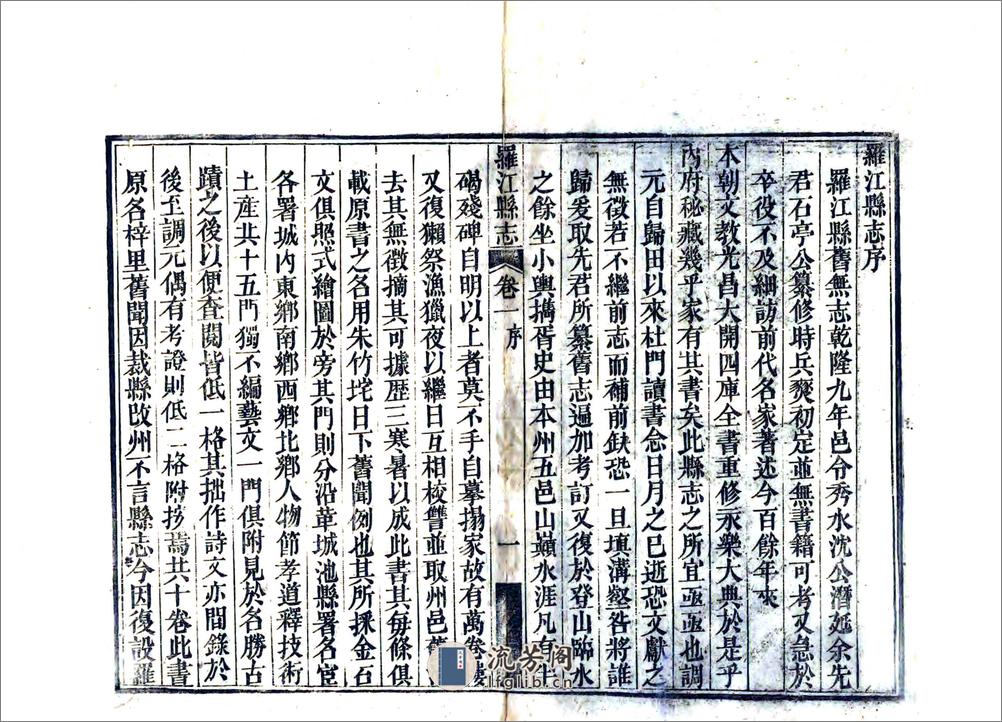 羅江縣志序
羅江縣舊無志乾隆九年邑令秀水沈公潛延余先
君石亭公纂修時兵燹初定並無書籍可考又急於
卒役不及細訪前代名家著述今百餘年來
本朝文教光昌大開四庫全書重修永樂大典於是乎
內府秘藏幾乎家有其書矣此縣志之所宜亟亟也調
元自歸田以來杜門讀書念日月之已逝恐文獻之
無徵若不繼前志而補前缺恐一旦填溝壑咎將誰
歸爰取先君所纂舊志遍加考訂又復於登山臨水
之餘坐小輿攜胥史由本州五邑山巔水涯凡有半
碣殘碑自明以上者莫不手自摹搨家故有萬卷樓
又復獺祭漁獵夜以繼日互相校讐並取州邑舊
去其無徵摘其可據歷三寒暑以成此書其每條俱
載原書之名用朱竹垞日下舊聞例也其所採金石
文俱照式繪圖於旁其門則分沿革城池縣署名宦
各署城內東鄉南鄉西鄉北鄉人物節孝道釋技術
土産共十五門獨不編藝文一門俱附見於名勝古
蹟之後以便查閱皆低一格其拙作詩文亦間錄於
後至調元偶有考證則低二格附按焉共十卷此書
原名梓里舊聞因裁縣改州不言縣志今因復設羅
羅江縣志 卷一 序 一
流芳閣
lfglib.cn